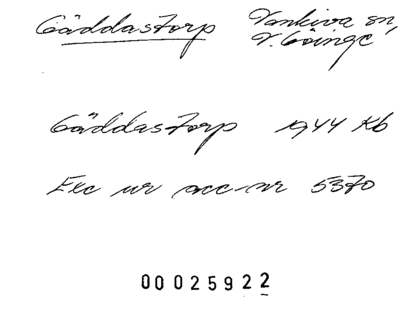 Gäddastorp Vankiva sn,
V. Göinge
Gäddastorp 1944 Kb
Exc ur acc-nr 5370
00025922